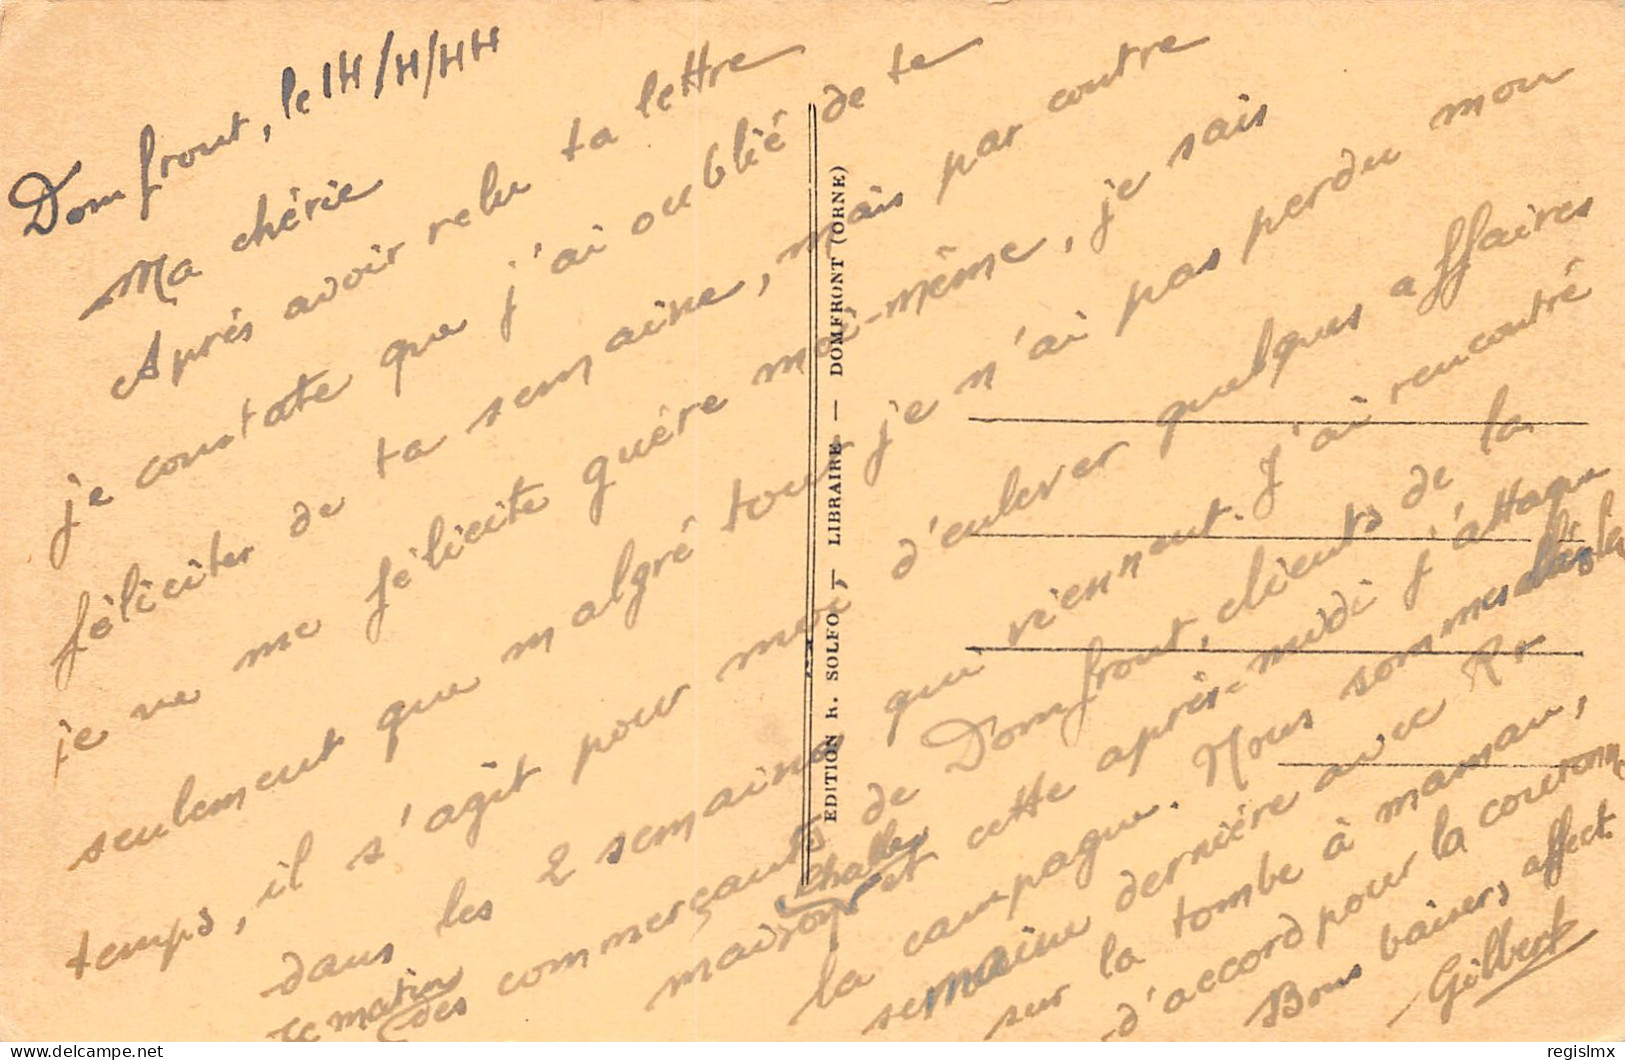 Domfront, le 14/4/44
Ma chérie
Après avoir relu ta lettre
je constate que j'ai oublié de te
féliciter de ta semaine, mais par contre
je ne me félicite guère moi-même, je sais
seulement que malgré tout je n'ai pas perdu mon
temps, il s'agit pour moi d'enlever quelques affaires
dans les 2 semaines qui viennent. J'ai rencontré
ce matin
des commerçants de Domfront, clients de la
maison
et cette après-midi j'attaque
la campagne. Nous sommes allés la
semaine dernière avec
sur la tombe à maman,
d'accord pour la couronne
Bons baisers affect.
Gilbert
EDITION R. SOLFO, LIBRAIRE — DOMFRONT (ORNE)
delcampe.net
regislmx